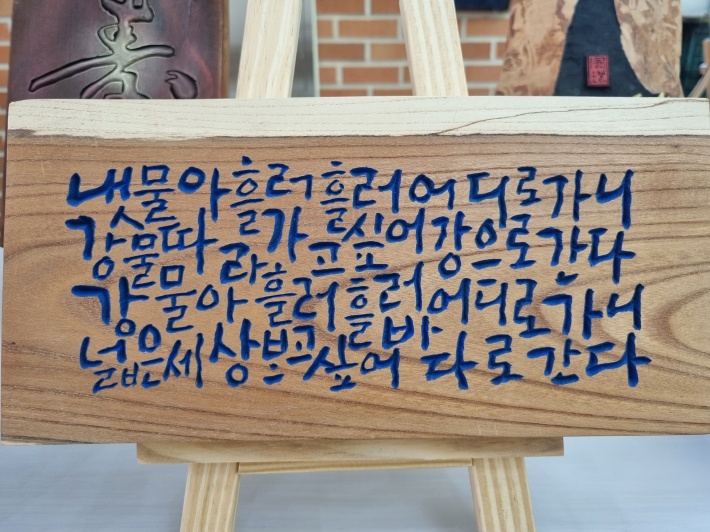 냇물아 흘러 흘러 어디로 가니
강물따라 가고싶어 강으로 간다
강물아 흘러 흘러 어디로 가니
넓은 세상 보고 싶어 바다로 간다